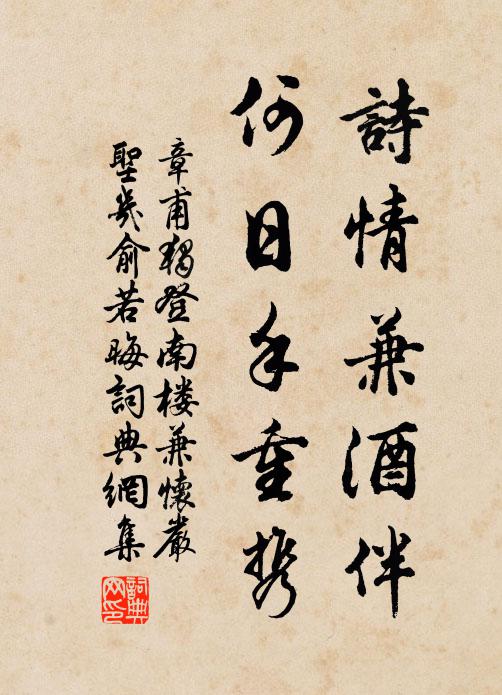 詩情兼酒伴
何日手重携
章甫獨登南楼兼懷嚴
聖幾俞若晦詞典網集
詞典網印